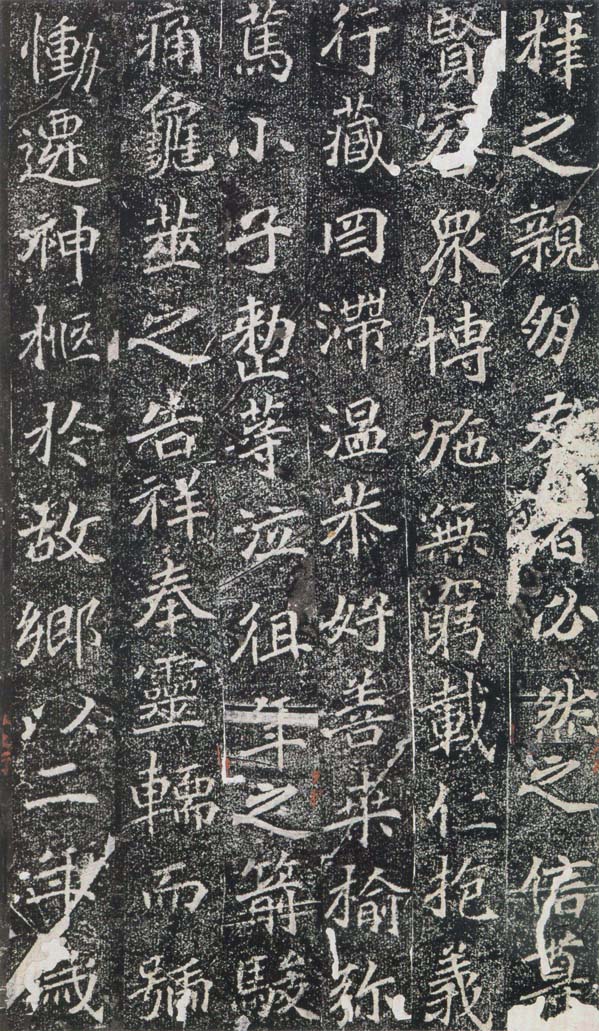 棣之親朋友有必然之信尊
賢容眾博施無窮載仁抱義
行藏罔滯温恭好善桒榆弥
篤小子整等泣徂年之箭駿
痛龜筮之告祥奉靈轜而號
慟遷神柩於故鄉以二年歲